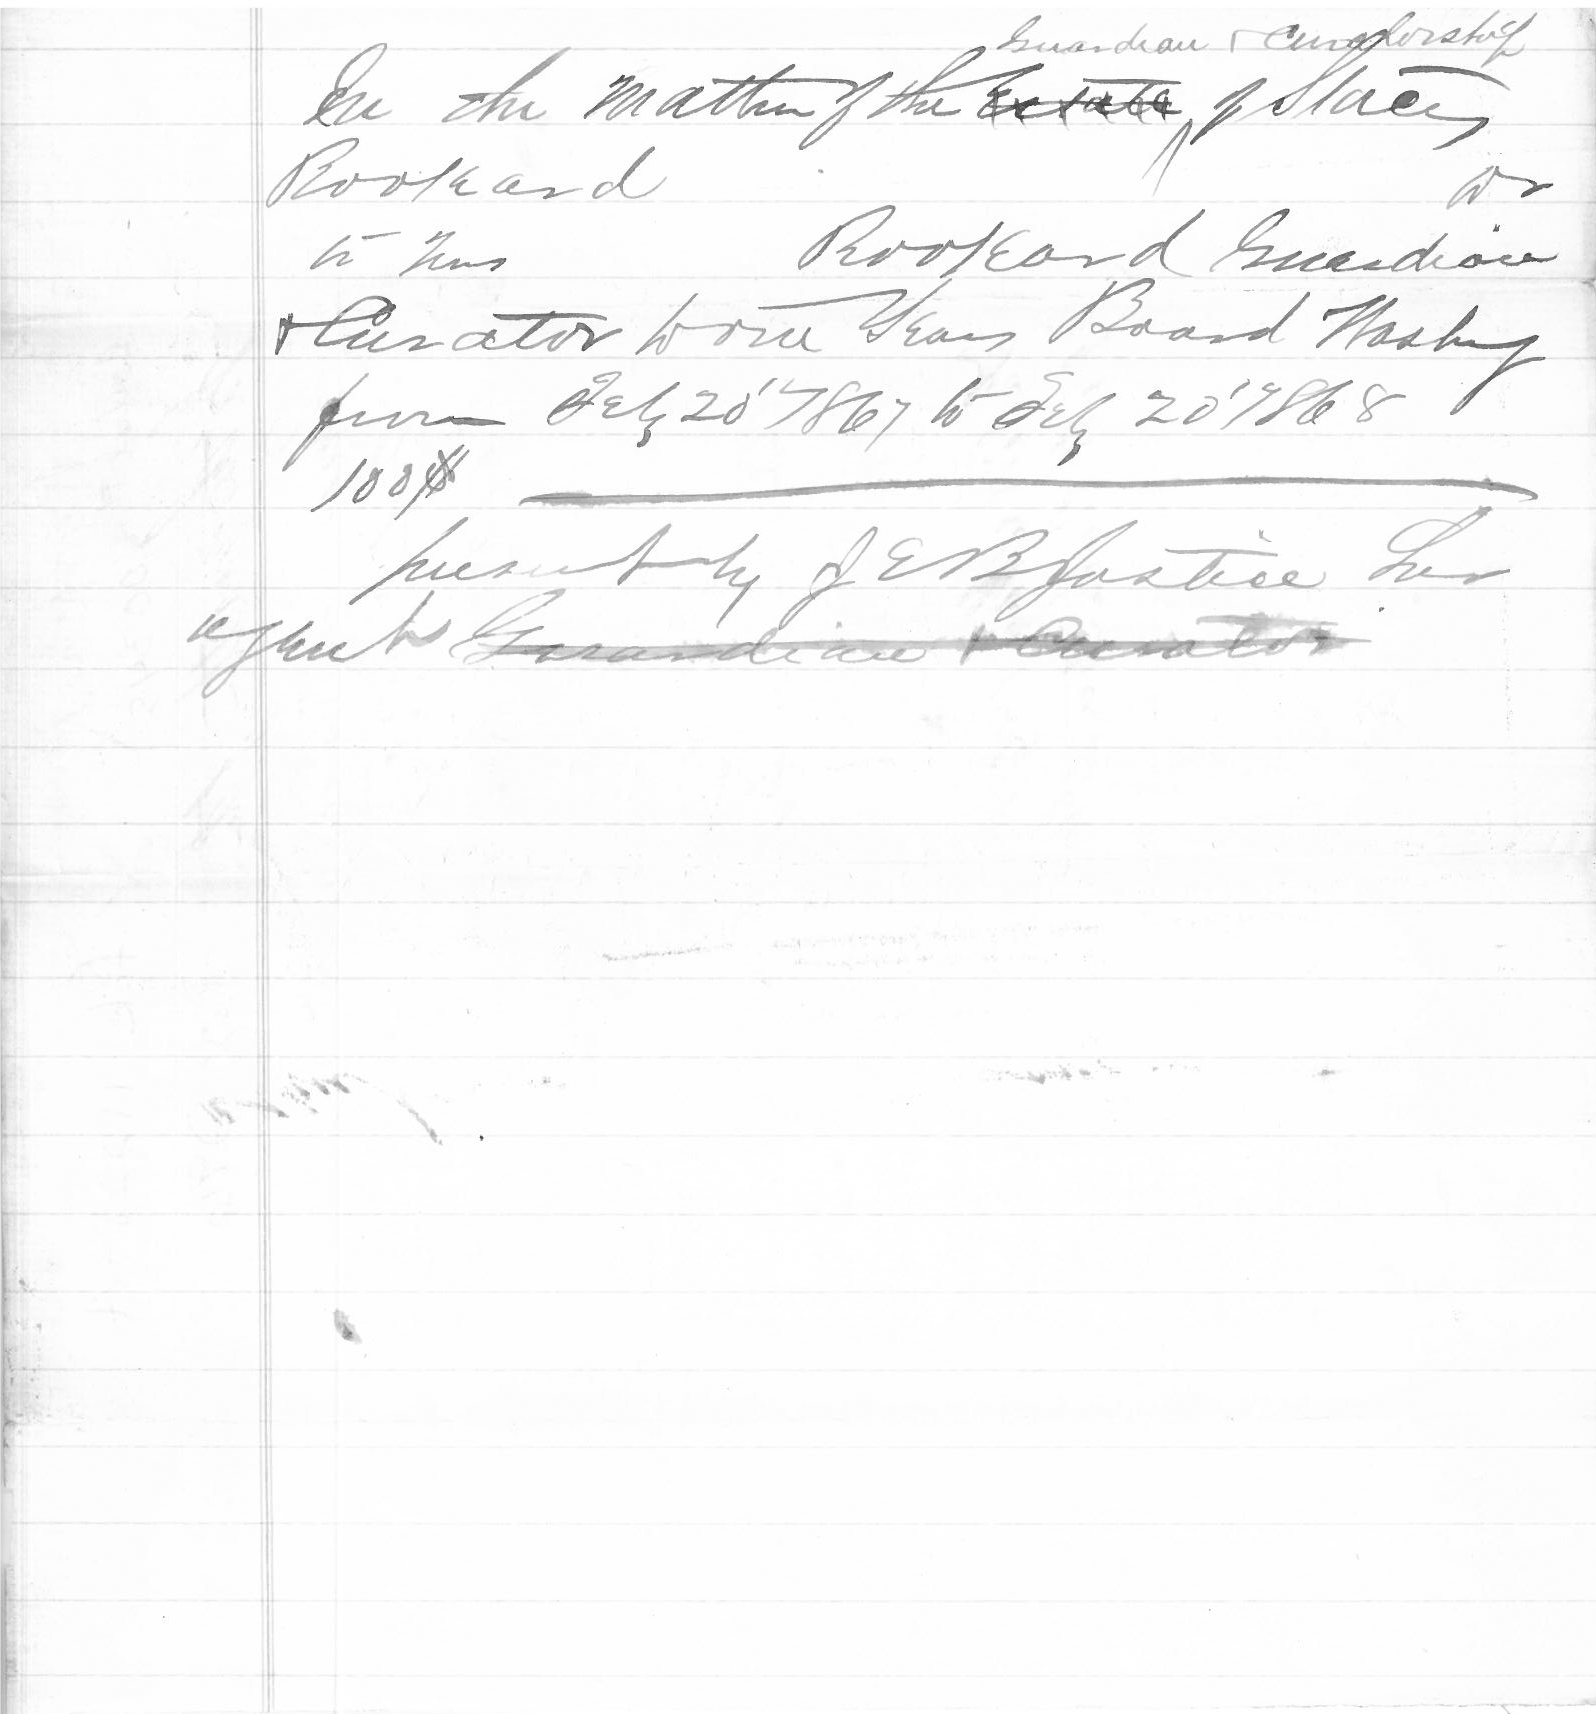 Guardian & Curatorship
In the Matter of the Estate of Stacy
Rookard Dr
to Mrs Rookard Guardian
& Curator to one Years Board Washing
from Feby 20' 1867 to Feby 20' 1868
100$
present by J E B Justice her
agent Guardian & Curator